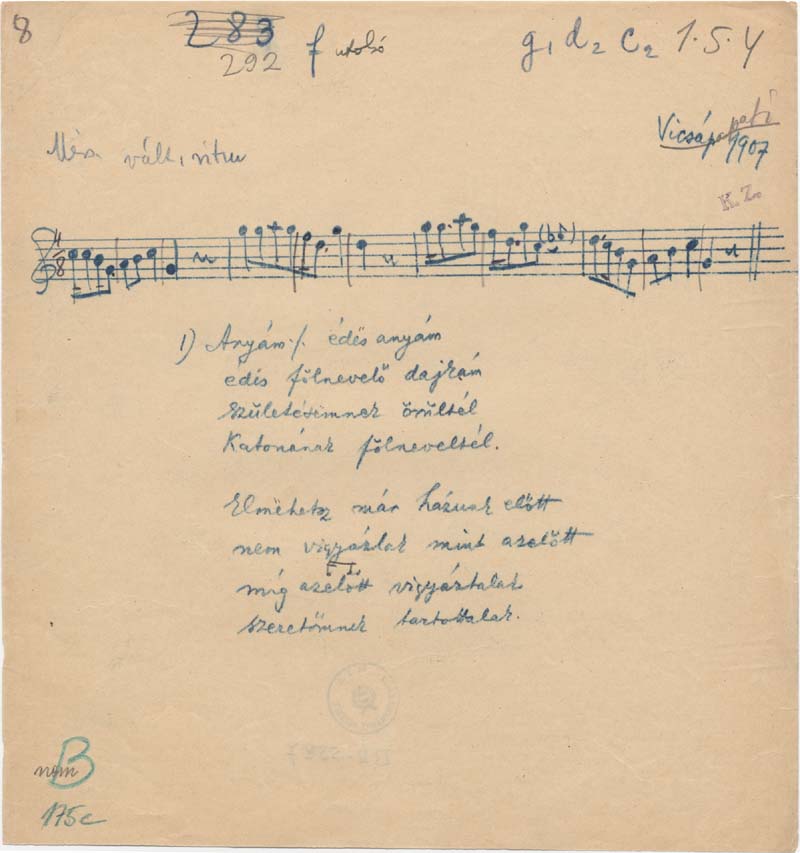 8
283
292 f utolsó
g1 d2 c2 1.5.4
Vicsápapati
1907
vált. ritm
K. Z.
4
8
1) Anyám ./. édës anyám
édës fölnevelő dajkám
születésëmnek örűltél
Katonának fölneveltél.
Elmëhetsz már házunk előtt
nem vigyázlak mint azelőtt
míg azelőtt vigyáztalak
szeretőmnek tartottalak.
nem B
175c